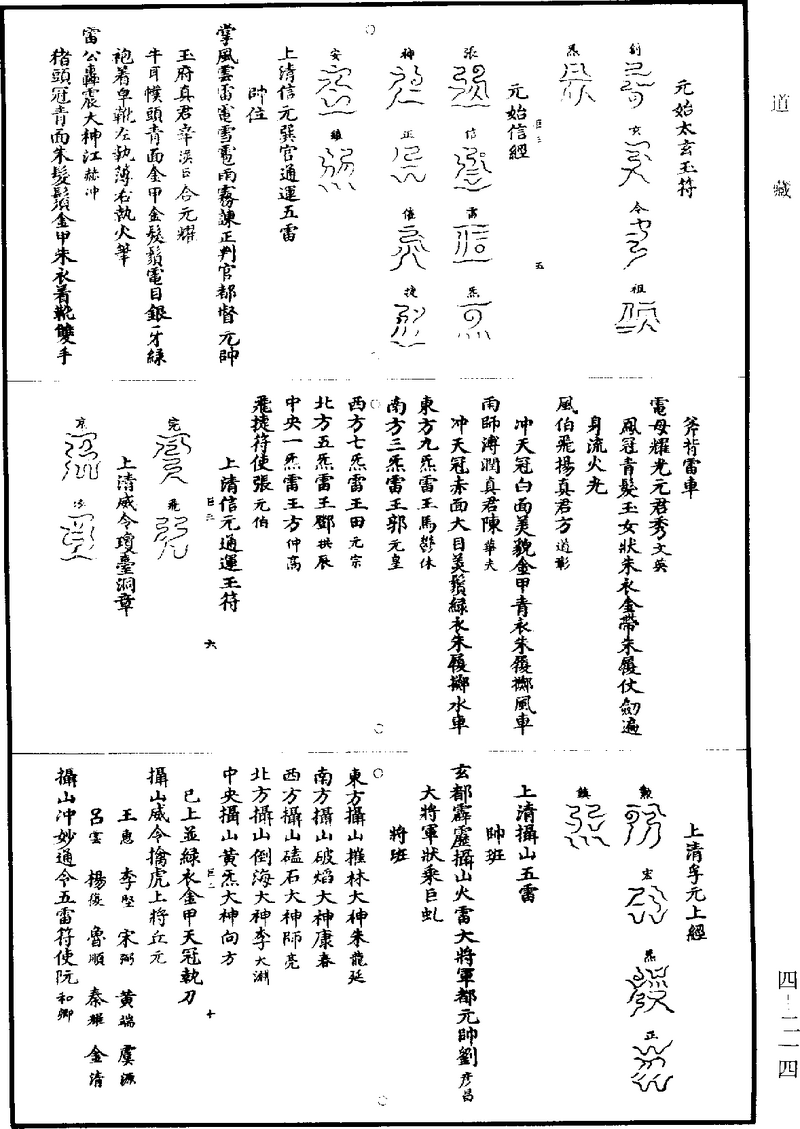 道藏
四-二一四
元始太玄玉符
劄 玄 令 祖
炁
元始信經
張 信 雷 炁
神 正 值 捷
安 雖
上清信元巽官通運五雷
帥位
掌風雲雷電雪雹雨霧諫正判官都督元帥
玉府真君辛漢臣合元耀
牛耳幞頭青面金甲金髮鬚電目銀牙綠
袍着皁靴左執薄右執火筆
雷公轟震大神江赫冲
猪頭冠青面朱髮鬚金甲朱衣着靴雙手
斧背雷車
電母耀光元君秀文英
鳳冠青髮玉女狀朱衣金帶朱履仗劒遍
身流火光
風伯飛揚真君方道彰
冲天冠白面美貌金甲青衣朱履擲風車
雨師溥潤真君陳華夫
冲天冠赤面大目美鬚綠衣朱履擲水車
東方九炁雷王馬鬱休
南方三炁雷王郭元皇
西方七炁雷王田元宗
北方五炁雷王鄧拱辰
中央一炁雷王方仲高
飛捷符使張元伯
上清信元通運王符
完 飛
上清威令瓊臺洞章
京
上清孚元上經
勲 宏 炁 正
上清攝山五雷
帥班
玄都霹靂攝山火雷大將軍都元帥劉彦昌
大將軍狀乘巨虬
將班
東方攝山摧林大神朱龍延
南方攝山破焰大神康春
西方攝山磕石大神師亮
北方攝山倒海大神李大淵
中央攝山黃炁大神向方
已上並綠衣金甲天冠執刀
攝山威令擒虎上將丘元
王惠 李堅 宋弼 黃端 虞源
呂雲 楊俊 魯順 秦耀 金清
攝山冲妙通令五雷符使阮和卿